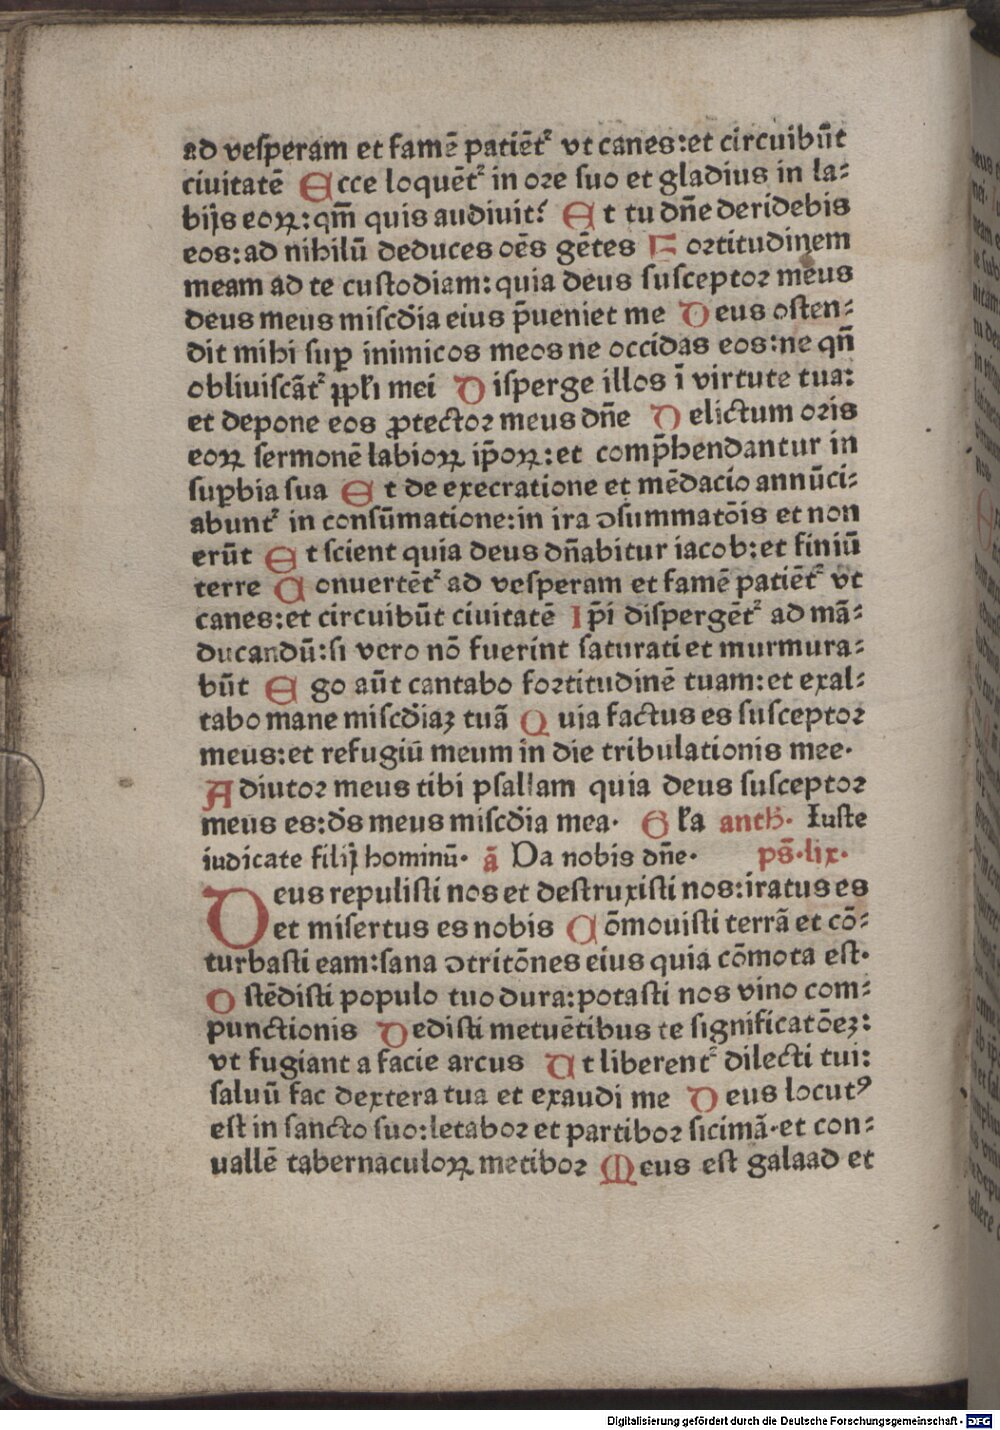 ad vesperam et famē patiēt᷑ vt canes: et circuibūt
ciuitatē Ecce loquēt᷑ in ore suo et gladius in la⸗
bijs eoꝝ: qm̄ quis audiuit? Et tu dn̄e deridebis
eos: ad nihilū deduces oēs gētes Fortitudinem
meam ad te custodiam: quia deus susceptor meus
deus meus misc̄dia eius p̄ueniet me Deus osten⸗
dit mihi suꝑ inimicos meos ne occidas eos: ne qn̄
obliuiscāt᷑ ppl̄i mei Disperge illos ī virtute tua:
et depone eos ꝓtector meus dn̄e Delictum oris
eoꝝ sermonē labioꝝ ip̄oꝝ: et comp̄hendantur in
suꝑbia sua Et de execratione et mēdacio annūci⸗
abunt᷑ in consūmatione: in ira ꝯsummatōis et non
erūt Et scient quia deus dn̄abitur iacob: et finiū
terre Conuertēt᷑ ad vesperam et famē patiēt᷑ vt
canes: et circuibūt ciuitatē Ip̄i dispergēt᷑ ad mā⸗
ducandū: si vero nō fuerint saturati et murmura⸗
būt Ego aūt cantabo fortitudinē tuam: et exal⸗
tabo mane misc̄diaꝫ tuā Quia factus es susceptor
meus: et refugiū meum in die tribulationis mee.
Adiutor meus tibi psallam quia deus susceptor
meus es: d̄s meus misc̄dia mea. Gl̄a anth̄. Iuste
iudicate filij hominū. ā Da nobis dn̄e. ps̄. lix.
Deus repulisti nos et destruxisti nos: iratus es
et misertus es nobis Cōmouisti terrā et cō⸗
turbasti eam: sana ꝯtritōnes eius quia cōmota est.
Ostēdisti populo tuo dura: potasti nos vino com⸗
punctionis Dedisti metuētibus te significatōeꝫ:
vt fugiant a facie arcus Ut liberent᷑ dilecti tui:
saluū fac dextera tua et exaudi me Deus locutꝰ
est in sancto suo: letabor et partibor sicimā. et con⸗
uallē tabernaculoꝝ metibor Meus est galaad et
Digitalisierung gefördert durch die Deutsche Forschungsgemeinschaft - DFG